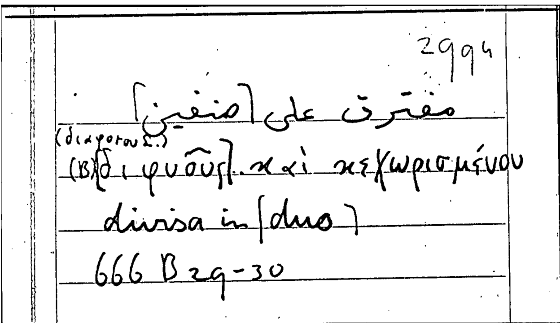 2994
مفترق على [صنفين]
(διαφοτουΣ.)
(B) [διφυοῦς] . καὶ κεχωρισμένου
divisa in [duo]
666 B 29-30